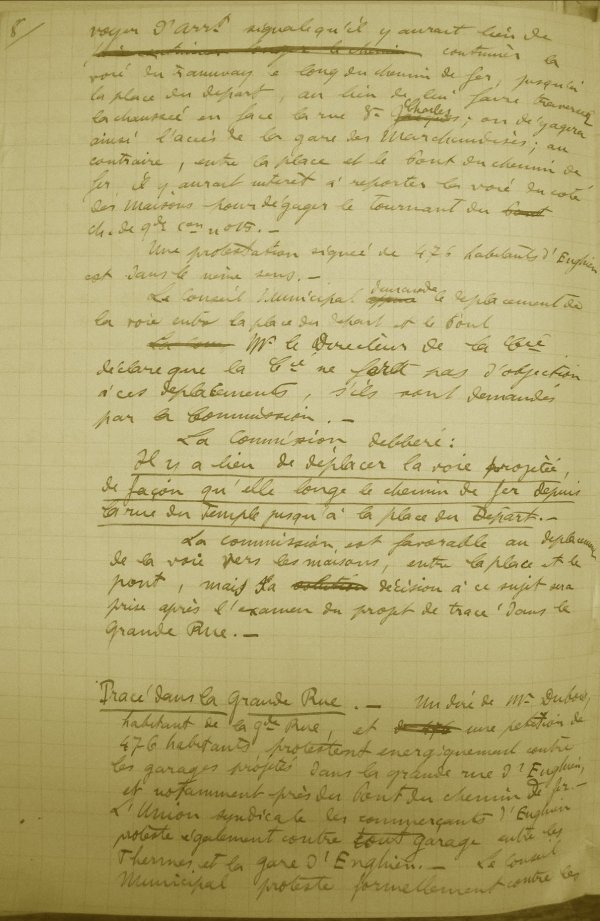 8/
voyer d'Arrt signale qu'il y aurait lieu de
continuer la
voie du tramway le long du chemin de fer, jusqu'à
la place du départ, au lieu de lui faire traverser
la chaussée en face la rue St Charles ; on dégagera
ainsi l'accès de la gare des Marchandises ; au
contraire, entre la place et le Pont du chemin de
fer, il y aurait intérêt à reporter la voie du coté
des maisons pour dégager le tournant du pont
ch. de gde con no 18. —
Une protestation signée de 476 habitants d'Enghien
est dans le même sens. —
Le Conseil Municipal demande le déplacement de
la voie entre la place du départ et le Pont
Mr le Directeur de la Cie
déclare que la Cie ne fait pas d'objection
à ces déplacements, s'ils sont demandés
par la Commission. —
La Commission délibéré :
Il y a lieu de déplacer la voie projetée,
de façon qu'elle longe le chemin de fer depuis
la rue du Temple jusqu'à la place du Départ. —
La commission, est favorable au déplacement
de la voie vers les maisons, entre la place et le
pont, mais la décision à ce sujet sera
prise après l'examen du projet de tracé dans la
Grande Rue. —
Tracé dans la Grande Rue. — Un diré de Mr Dubos,
habitant de la gde Rue, et une petition de
476 habitants protestent energiquement contre
les garages projetés dans la grande rue d'Enghien,
et notamment près du Pont du chemin de fer. —
L'Union syndicale des commerçants d'Enghien
proteste également contre tout garage entre les
Thermes et la gare d'Enghien. — Le Conseil
Municipal proteste formellement contre les